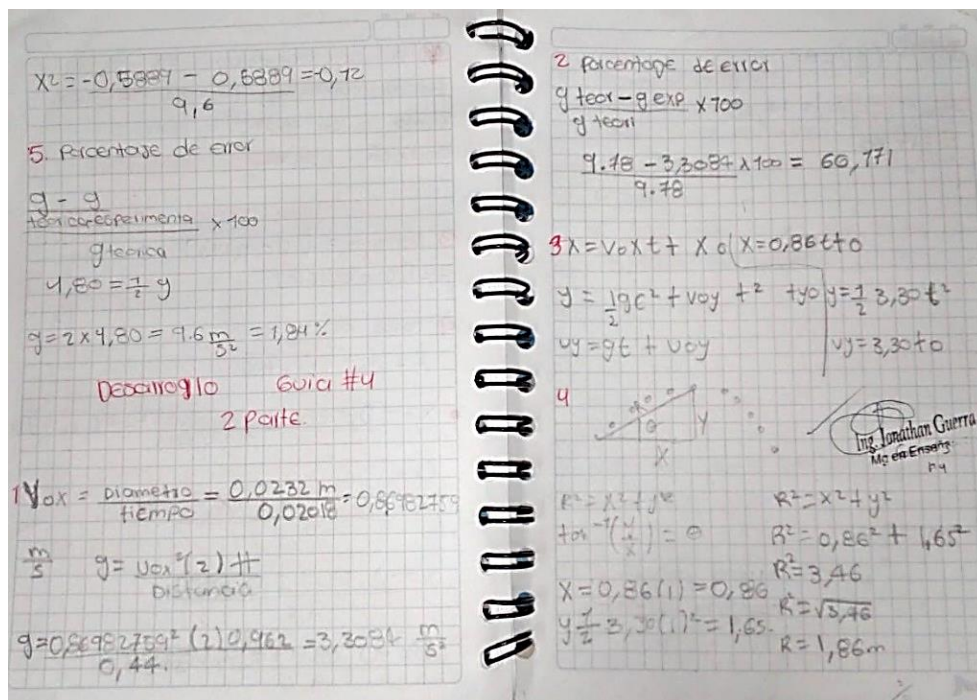 x2 = -0,5889 - 0,5889 = -0,12
9,6
5. Porcentaje de error
g - g
teorica-esperimenta x 100
g teorica
4,80 = 1/2 g
g = 2 x 4,80 = 9.6 m/s² = 1,84 %
Desarrollo Guia #4
2 Parte
1 Vox = Diametro / tiempo = 0,0232 m / 0,02018 = 0,86982759
m/s g = vox²(2) H / Distancia
g = 0,86982759² (2) 0,962 / 0,44. = 3,3084 m/s²
2 Porcentage de error
g teor - g exp x 100
g teori
9.78 - 3,3084 x 100 = 60,171
9.78
3 x = vo x t + x o x = 0,86 t + 0
y = 1/2 g t² + voy t² + yo y = 1/2 3,30 t²
vy = gt + voy vy = 3,30 t 0
4
θ Y
X
Ing. Jonathan Guerra
Mg en Enseñ
R² = x² + y² R² = x² + y²
tan⁻¹(y/x) = θ R² = 0,86² + 1,65²
R² = 3,46
x = 0,86(1) = 0,86
R² = √3,46
y 1/2 3,30(1)² = 1,65.
R = 1,86 m